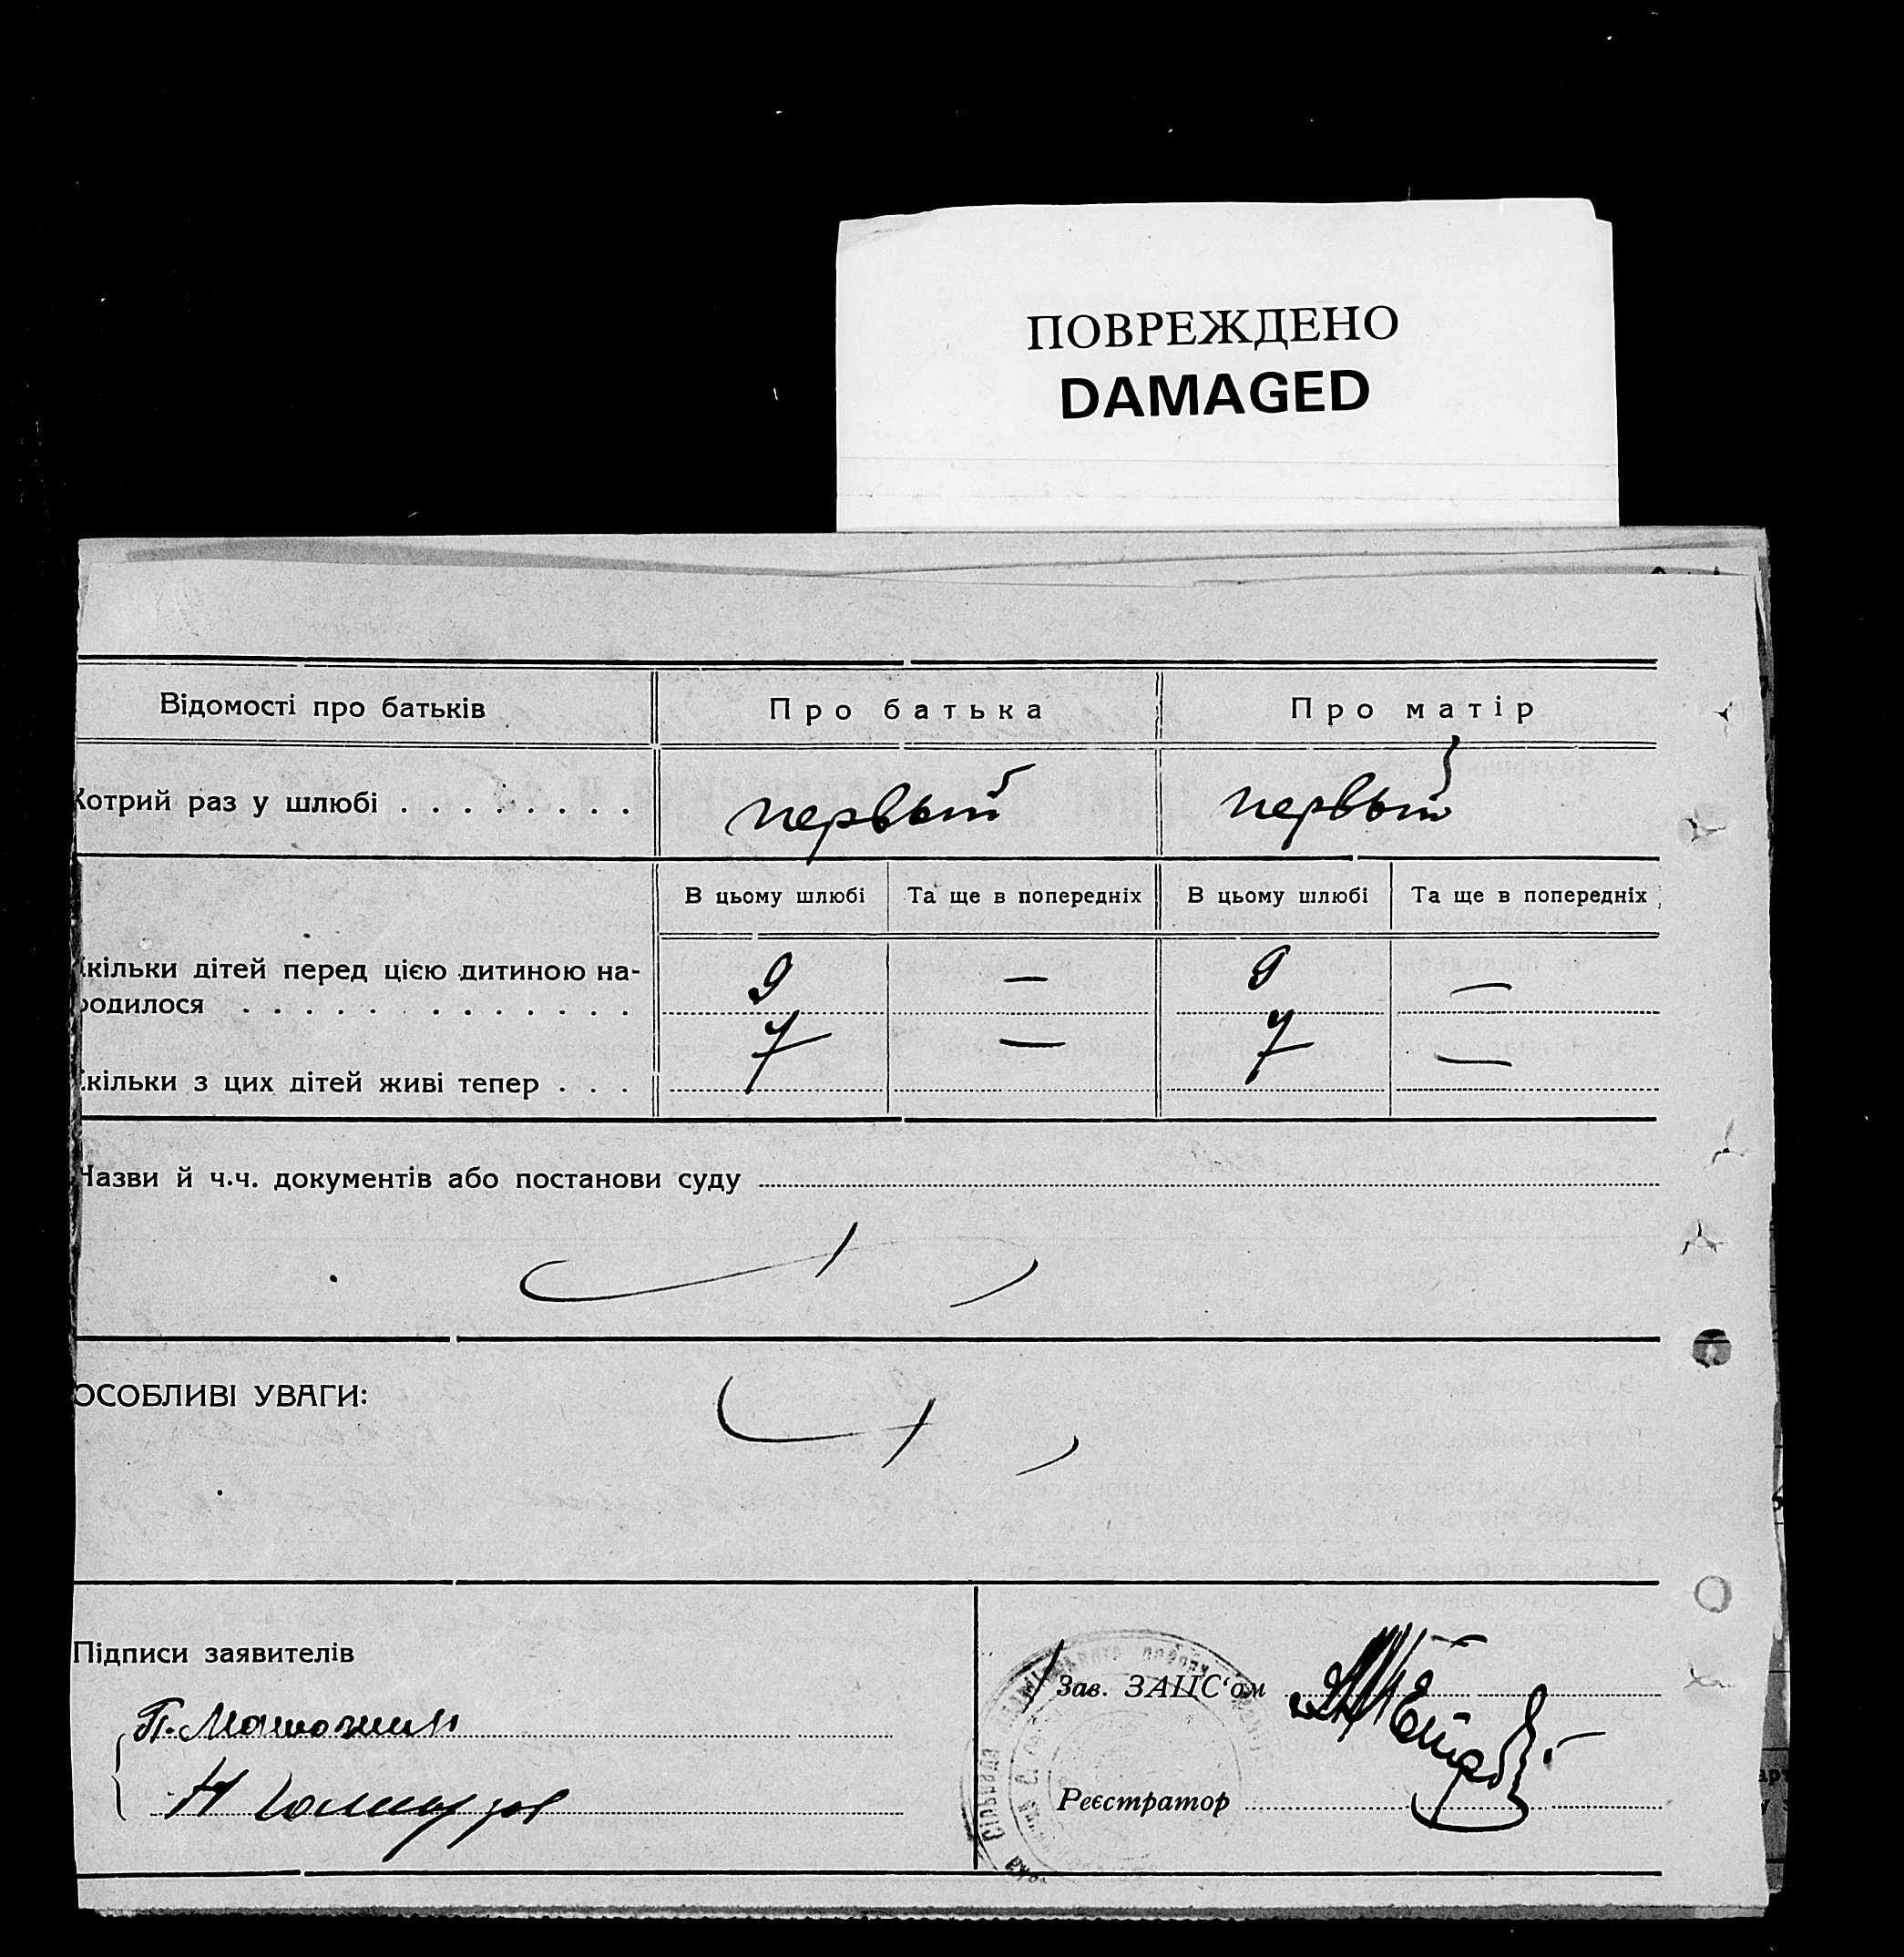 ПОВРЕЖДЕНО
DAMAGED
Відомості про батьків
Про батька
Про матір
Котрий раз у шлюбі
первый
первый
В цьому шлюбі
Та ще в попередніх
В цьому шлюбі
Та ще в попередніх
кільки дітей перед цією дитиною на-
родилося
9
—
9
—
кільки з цих дітей живі тепер . . .
7
—
7
—
Назви й ч.ч. документів або постанови суду
ОСОБЛИВІ УВАГИ:
Підписи заявителів
Зав. ЗАЦС'ом
Реєстратор
Сільрада